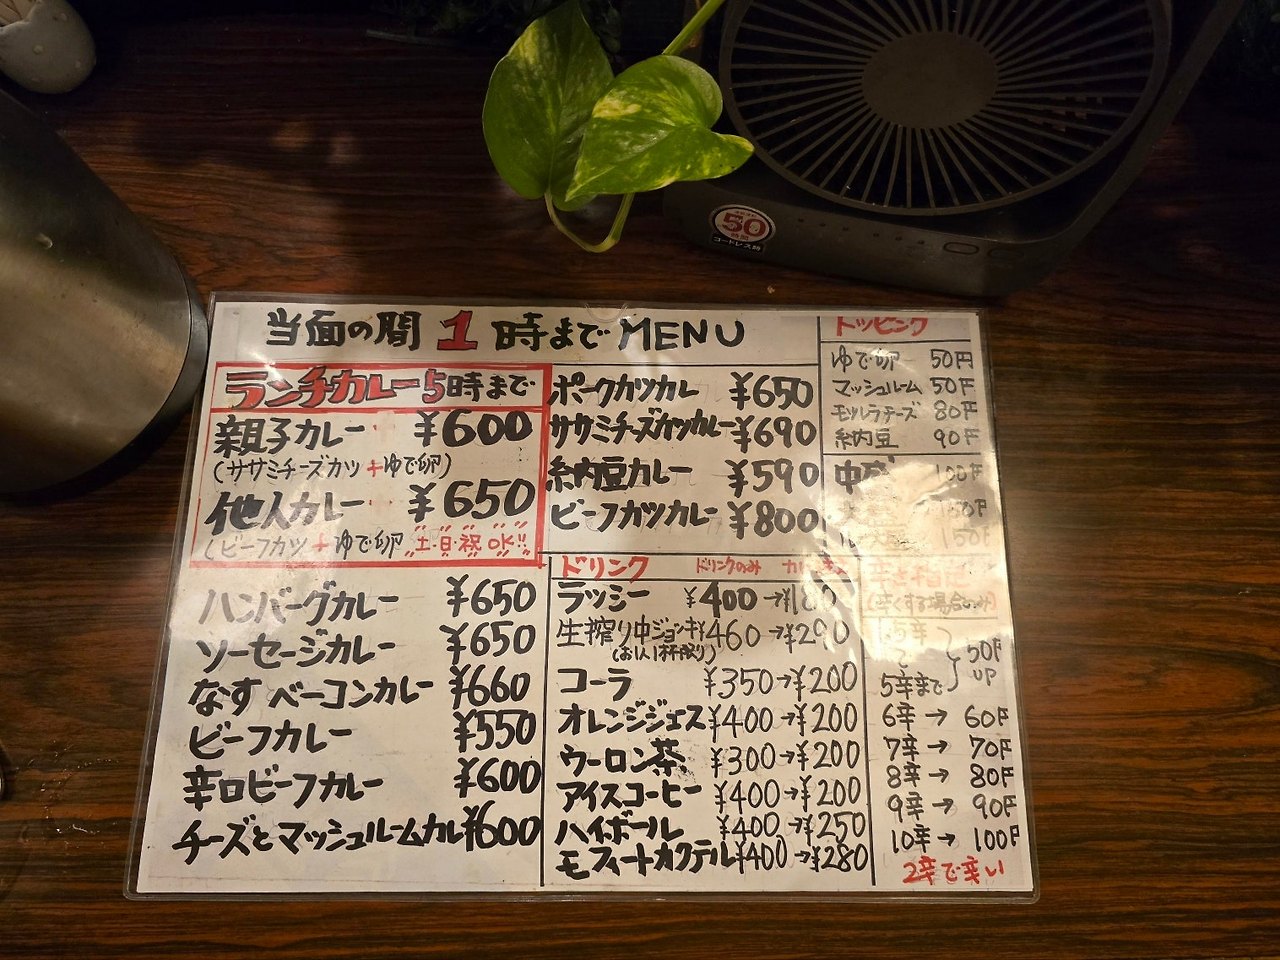 50
コードレス時
当面の間 1時までMENU
ランチカレー5時まで
親子カレー ¥600
(ササミチーズカツ+ゆで卵)
他人カレー ¥650
(ビーフカツ+ゆで卵 土・日・祝OK!!
ハンバーグカレー ¥650
ソーセージカレー ¥650
なすベーコンカレー ¥660
ビーフカレー ¥550
辛口ビーフカレー ¥600
チーズとマッシュルームカレ ¥600
ポークカツカレ ¥650
ササミチーズカツカレー ¥690
納豆カレー ¥590
ビーフカツカレー ¥800
ドリンク ドリンクのみ
ラッシー ¥400→¥180
生搾り中ジョッキ ¥460→¥290
(お1人1杯限り)
コーラ ¥350→¥200
オレンジジュース ¥400→¥200
ウーロン茶 ¥300→¥200
アイスコーヒー ¥400→¥200
ハイボール ¥400→¥250
モヒィートカクテル ¥400→¥280
トッピング
ゆで卵 50円
マッシュルーム 50円
モツルラチーズ 80円
納豆 90円
中盛 100円
150円
辛さ指定
(辛くする場合のみ)
1.5辛
5辛まで
50円
UP
6辛→60円
7辛→70円
8辛→80円
9辛→90円
10辛→100円
2辛で辛い